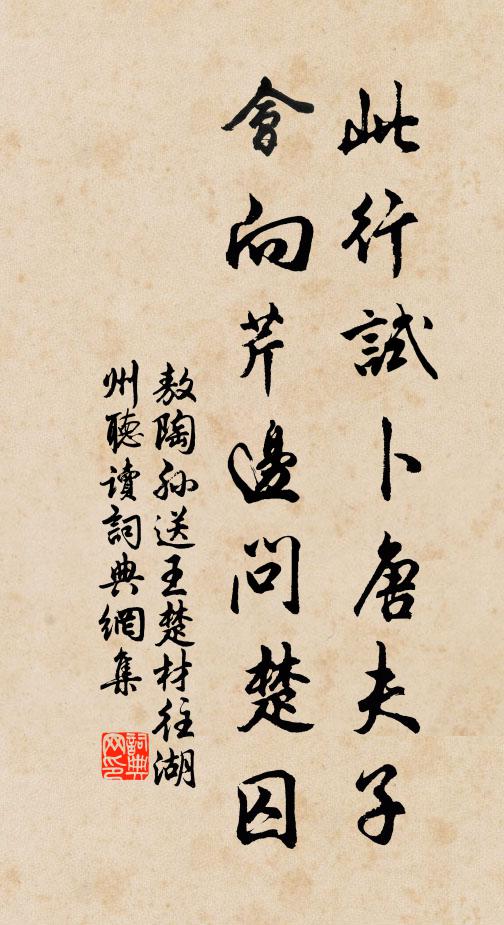 此行試卜唐夫子
會向芹邊問楚囚
敖陶孫送王楚材往湖
州聽讀詞典網集
詞典
网印